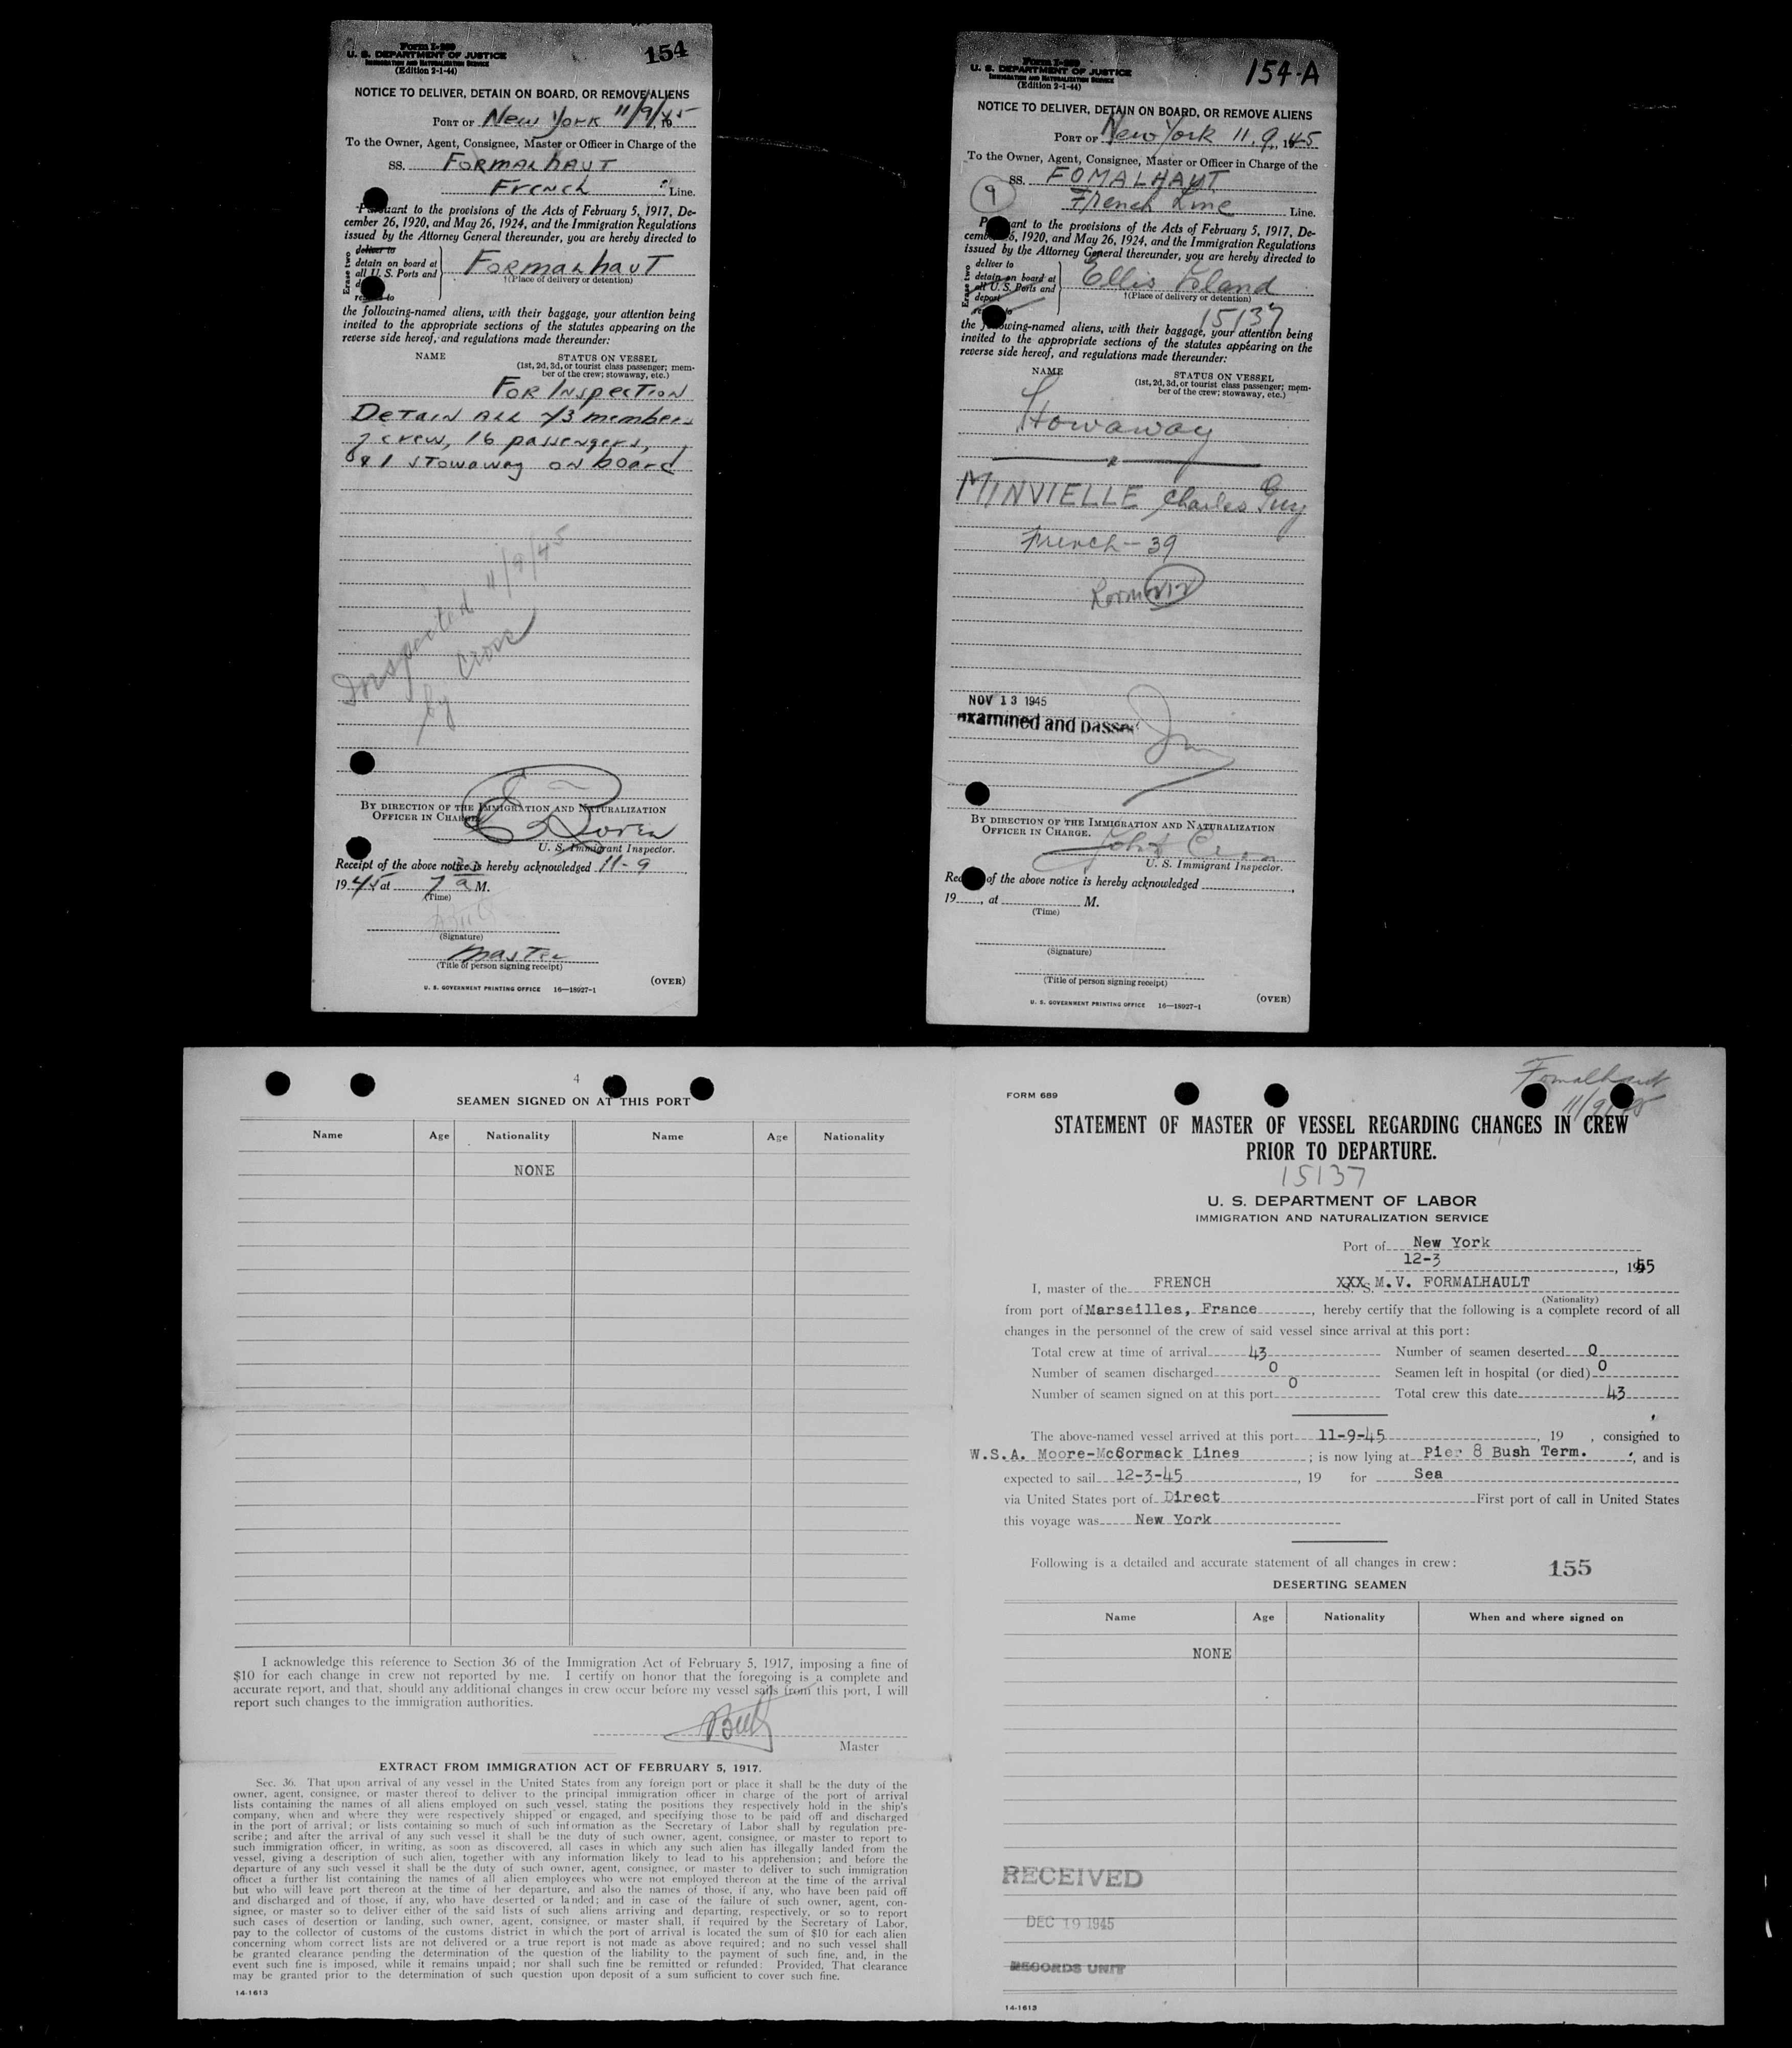 Form I-259
154
U. S. DEPARTMENT OF JUSTICE
IMMIGRATION AND NATURALIZATION SERVICE
(Edition 2-1-44)
NOTICE TO DELIVER, DETAIN ON BOARD, OR REMOVE ALIENS
PORT OF New York 11/9/, 1945
To the Owner, Agent, Consignee, Master or Officer in Charge of the
SS. FORMALHAUT
French Line.
Pursuant to the provisions of the Acts of February 5, 1917, De-
cember 26, 1920, and May 26, 1924, and the Immigration Regulations
issued by the Attorney General thereunder, you are hereby directed to
Erase two
deliver to
detain on board at
all U. S. Ports and
remove to
FORMALHAUT
†(Place of delivery or detention)
the following-named aliens, with their baggage, your attention being
invited to the appropriate sections of the statutes appearing on the
reverse side hereof, and regulations made thereunder:
NAME STATUS ON VESSEL
(1st, 2d, 3d, or tourist class passenger; mem-
ber of the crew; stowaway, etc.)
FOR INSPECTION
DETAIN ALL 43 members
of crew, 16 passengers,
& 1 STOWAWAY ON board
Inspected 11/9/45
by Cron
BY DIRECTION OF THE IMMIGRATION AND NATURALIZATION
OFFICER IN CHARGE.
U. S. Immigrant Inspector.
Receipt of the above notice is hereby acknowledged 11-9
1945 at 7 a M.
(Time)
(Signature)
master
(Title of person signing receipt)
U. S. GOVERNMENT PRINTING OFFICE 16—18927-1
(OVER)
Form I-259
154-A
U. S. DEPARTMENT OF JUSTICE
IMMIGRATION AND NATURALIZATION SERVICE
(Edition 2-1-44)
NOTICE TO DELIVER, DETAIN ON BOARD, OR REMOVE ALIENS
PORT OF New York 11.9., 1945
To the Owner, Agent, Consignee, Master or Officer in Charge of the
9
SS. FOMALHAUT
French Line Line.
Pursuant to the provisions of the Acts of February 5, 1917, De-
cember 26, 1920, and May 26, 1924, and the Immigration Regulations
issued by the Attorney General thereunder, you are hereby directed to
Erase two
deliver to
detain on board at
all U. S. Ports and
deport
remove to
Ellis Island
†(Place of delivery or detention)
15137
the following-named aliens, with their baggage, your attention being
invited to the appropriate sections of the statutes appearing on the
reverse side hereof, and regulations made thereunder:
NAME STATUS ON VESSEL
(1st, 2d, 3d, or tourist class passenger; mem-
ber of the crew; stowaway, etc.)
Stowaway
MINVIELLE Charles Guy
French - 39
Room 212
NOV 13 1945
examined and passed
BY DIRECTION OF THE IMMIGRATION AND NATURALIZATION
OFFICER IN CHARGE.
U. S. Immigrant Inspector.
Receipt of the above notice is hereby acknowledged
19, at M.
(Time)
(Signature)
(Title of person signing receipt)
U. S. GOVERNMENT PRINTING OFFICE 16—18927-1
(OVER)
4
SEAMEN SIGNED ON AT THIS PORT
Name Age Nationality Name Age Nationality
NONE
I acknowledge this reference to Section 36 of the Immigration Act of February 5, 1917, imposing a fine of
$10 for each change in crew not reported by me. I certify on honor that the foregoing is a complete and
accurate report, and that, should any additional changes in crew occur before my vessel sails from this port, I will
report such changes to the immigration authorities.
Master
EXTRACT FROM IMMIGRATION ACT OF FEBRUARY 5, 1917.
Sec. 36. That upon arrival of any vessel in the United States from any foreign port or place it shall be the duty of the
owner, agent, consignee, or master thereof to deliver to the principal immigration officer in charge of the port of arrival
lists containing the names of all aliens employed on such vessel, stating the positions they respectively hold in the ship's
company, when and where they were respectively shipped or engaged, and specifying those to be paid off and discharged
in the port of arrival; or lists containing so much of such information as the Secretary of Labor shall by regulation pre-
scribe; and after the arrival of any such vessel it shall be the duty of such owner, agent, consignee, or master to report to
such immigration officer, in writing, as soon as discovered, all cases in which any such alien has illegally landed from the
vessel, giving a description of such alien, together with any information likely to lead to his apprehension; and before the
departure of any such vessel it shall be the duty of such owner, agent, consignee, or master to deliver to such immigration
officer a further list containing the names of all alien employees who were not employed thereon at the time of the arrival
but who will leave port thereon at the time of her departure, and also the names of those, if any, who have been paid off
and discharged and of those, if any, who have deserted or landed; and in case of the failure of such owner, agent, con-
signee, or master so to deliver either of the said lists of such aliens arriving and departing, respectively, or so to report
such cases of desertion or landing, such owner, agent, consignee, or master shall, if required by the Secretary of Labor,
pay to the collector of customs of the customs district in which the port of arrival is located the sum of $10 for each alien
concerning whom correct lists are not delivered or a true report is not made as above required; and no such vessel shall
be granted clearance pending the determination of the question of the liability to the payment of such fine, and, in the
event such fine is imposed, while it remains unpaid; nor shall such fine be remitted or refunded: Provided, That clearance
may be granted prior to the determination of such question upon deposit of a sum sufficient to cover such fine.
14-1613
Fomalhaut
11/9/45
FORM 689
STATEMENT OF MASTER OF VESSEL REGARDING CHANGES IN CREW
PRIOR TO DEPARTURE.
15137
U. S. DEPARTMENT OF LABOR
IMMIGRATION AND NATURALIZATION SERVICE
Port of New York
12-3, 1945
I, master of the FRENCH XXX S. M.V. FORMALHAULT
(Nationality)
from port of Marseilles, France, hereby certify that the following is a complete record of all
changes in the personnel of the crew of said vessel since arrival at this port:
Total crew at time of arrival 43 Number of seamen deserted 0
Number of seamen discharged 0 Seamen left in hospital (or died) 0
Number of seamen signed on at this port 0 Total crew this date 43
The above-named vessel arrived at this port 11-9-45, 19 , consigned to
W.S.A. Moore-McCormack Lines; is now lying at Pier 8 Bush Term., and is
expected to sail 12-3-45, 19 for Sea
via United States port of Direct First port of call in United States
this voyage was New York
Following is a detailed and accurate statement of all changes in crew:
155
DESERTING SEAMEN
Name Age Nationality When and where signed on
NONE
RECEIVED
DEC 19 1945
RECORDS UNIT
14-1613